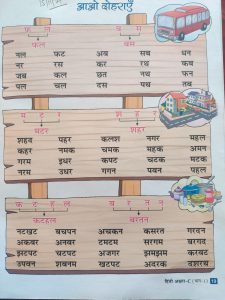 आओ दोहराएँ
फ ल
ब स
फल
बस
नल फट अब सब धन
नर रस कर रथ कब
जब कल छत नथ फन
पल चल दस पथ तब
म ट र
श ह र
मटर
शहर
शहद पहर कलश नगर महल
कहर नमक चमक महक अमल
गरम इधर कपट चटक मटक
नरम उधर गगन पवन पहल
क ट ह ल
ब र त न
कटहल
बरतन
नटखट बचपन अचकन कसरत गरदन
अकबर अनबर टमटम सरगम बरगद
झटपट चटपट अजगर झमझम करवट
उपवन शबनम खटपट अदरक दशरथ
हिंदी अक्षरा-C (भाग-1) 19